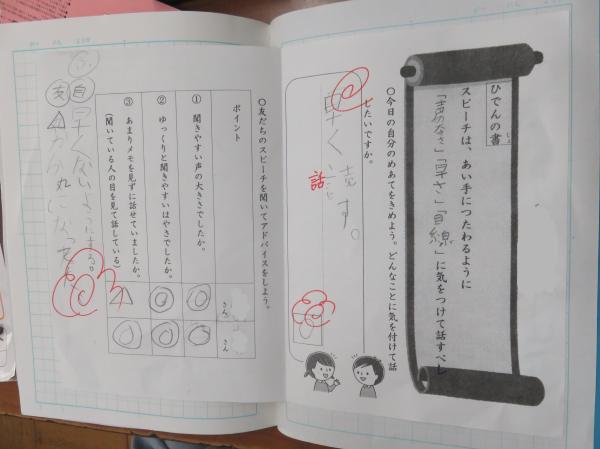 ひでんの書
しょ
スピーチは、あい手につたわるように
「声の大きさ」「早さ」「目線」に気をつけて話すべし
〇今日の自分のめあてをきめよう。どんなことに気を付けて話
したいですか。
早く
話
す。
〇友だちのスピーチを聞いてアドバイスをしよう。
ポイント
さん
さん
① 聞きやすい声の大きさでしたか。
◎
◎
② ゆっくりと聞きやすいはやさでしたか。
◎
◎
③ あまりメモを見ずに話せていましたか。
(聞いている人の目を見て話している)
△
◎
ふ
自 早くないようにする。
友 △が
丸になってた